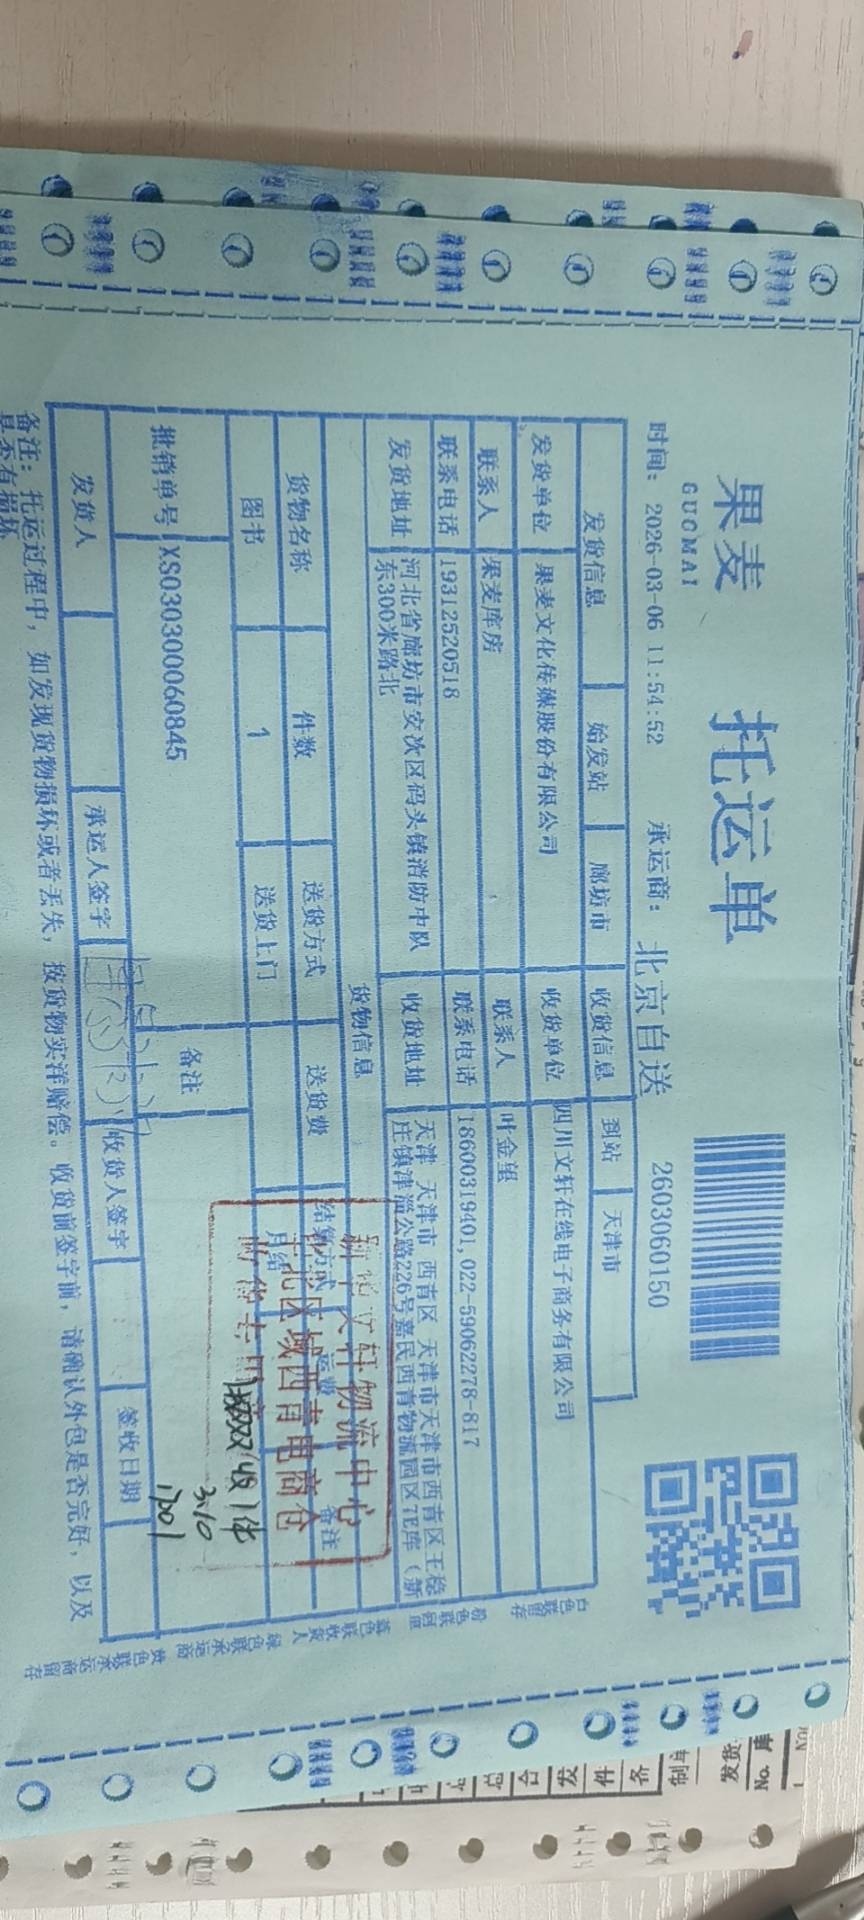 果麦
GUOMAI
托运单
时间: 2026-03-06 11:54:52
承运商: 北京自送
2603060150
发货信息 始发站 廊坊市 收货信息 到站 天津市
发货单位 果麦文化传媒股份有限公司 收货单位 四川文轩在线电子商务有限公司
联系人 果麦库房 联系人 叶金望
联系电话 19312520518 联系电话 18600319401,022-59062278-817
发货地址 河北省廊坊市安次区码头镇消防中队东300米路北 收货地址 天津 天津市 西青区 天津市天津市西青区王稳庄镇津淄公路226号嘉民西青物流园区7E库（新
货物信息
货物名称 件数 送货方式 送货费 结算方式 运费 备注
图书 1 送货上门 月结
批销单号 XS030300060845 备注
发货人 承运人签字 收货人签字 签收日期
备注: 托运过程中，如发现货物损坏或者丢失，按货物实洋赔偿。收货前签字前，请确认外包是否完好，以及是否有损坏
白色联留存
粉色联回单
蓝色联收货人
绿色联承运商
黄色联承运商留存
新华文轩物流中心
华北区域西青电商仓
收货专用章
实收1件
3.10